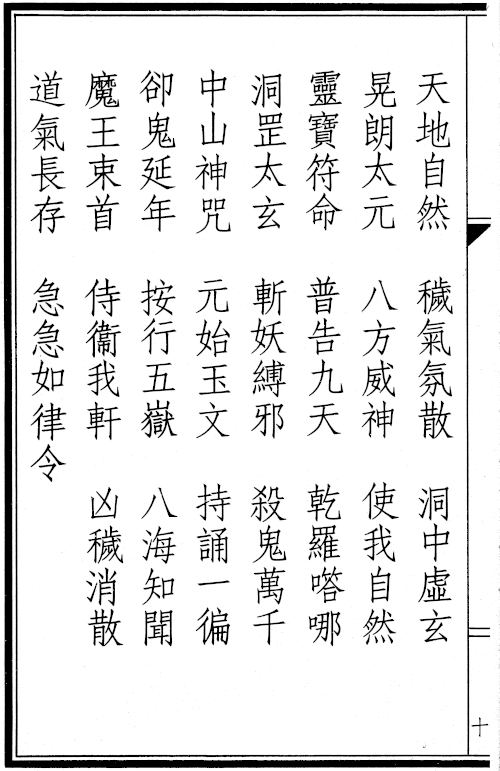 天地自然 穢氣氛散 洞中虛玄
晃朗太元 八方威神 使我自然
靈寶符命 普告九天 乾羅嗒哪
洞罡太玄 斬妖縛邪 殺鬼萬千
中山神咒 元始玉文 持誦一徧
卻鬼延年 按行五嶽 八海知聞
魔王束首 侍衞我軒 凶穢消散
道氣長存 急急如律令
十